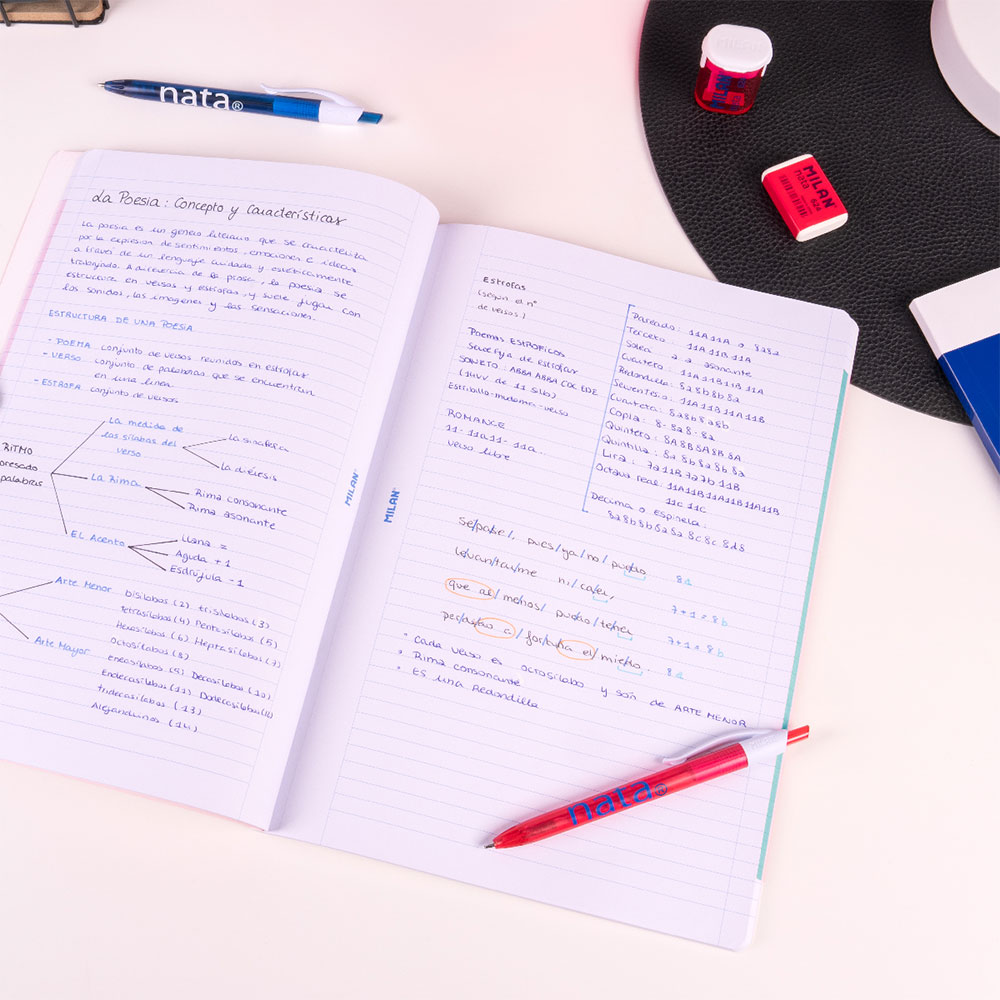 nata®
MILAN
MILAN
nata 624
La Poesia: Concepto y Características
La poesia es un genero literario que se caracteriza
por la expresion de sentimientos, emociones e ideas
a traves de un lenguaje cuidado y esteticamente
trabajado. A diferencia de la prosa, la poesia se
estructura en versos y estrofas, y suele jugar con
los sonidos, las imagenes y las sensaciones.
ESTRUCTURA DE UNA POESIA
- POEMA conjunto de versos reunidos en estrofas
- VERSO conjunto de palabras que se encuentran
en una linea
- ESTROFA conjunto de versos
RITMO
presado
palabras
La medida de
las silabas del
verso
La sinalefa
La diéresis
La Rima
Rima consonante
Rima asonante
EL Acento
Llana =
Aguda +1
Esdrújula -1
Arte Menor
bisilabos (2) trisilabos (3)
tetrasilabos (4) Pentasilabos (5)
Hexasilabos (6) Heptasilabos (7)
Octosilabos (8)
Arte Mayor
eneasilabos (9) Decasilabos (10)
Endecasilabos (11) Dodecasilabos (12)
tridecasilabos (13)
Alejandrinos (14)
MILAN®
MILAN®
ESTROFAS
(según el nº
de versos)
Poemas ESTROFICOS
de estrofas
SONETO: ABBA ABBA CDE EDE
(14vv de 11 silb)
Estribillo-mudanza-verso
ROMANCE
11- 11a 11- 11a.
verso libre
Pareado: 11A 11A o 8a8a
Terceto: 11A 11B 11A
Solea: a - a asonante
Cuarteto: 11A 11B 11B 11A
Redondilla: 8a 8b 8b 8a
Serventesio: 11A 11B 11A 11B
Cuarteta: 8a 8b 8a 8b
Copla: 8- 8a 8- 8a
Quinteto: 8A 8B 8A 8B 8A
Quintilla: 8a 8b 8a 8b 8a
Lira: 7a 11B 7a 7b 11B
Octava real: 11A 11B 11A 11B 11A 11B
11C 11C
Decima o Espinela:
8a 8b 8b 8a 8a 8c 8c 8d 8
pues/ya/no/puedo 8a
le/van/tar/me ni/ca/er, 7+1=8b
que al/menos/ puedo/tener 7+1=8b
fortuna el/miedo. 8a
• Cada verso es octosilabo y son de ARTE MENOR
• Rima consonante
• ES una Redondilla
nata®